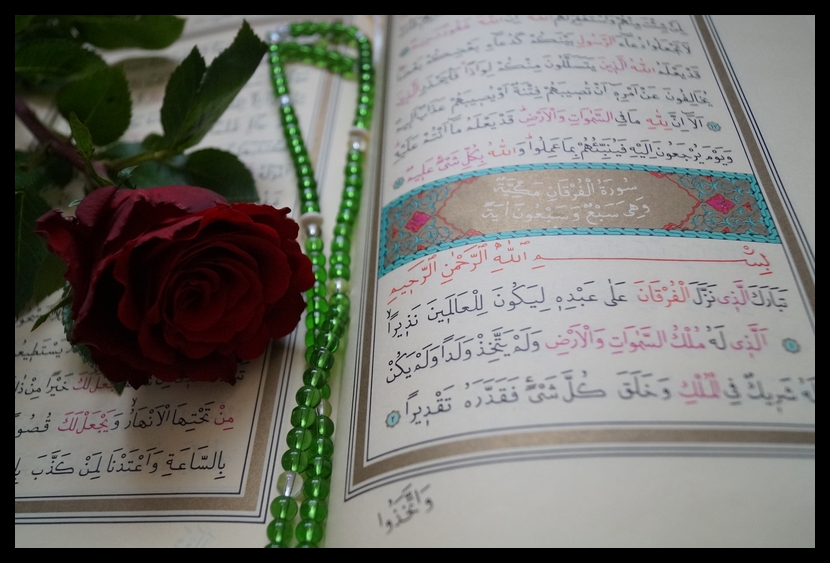 لَا تَجْعَلُوا دُعَاءَ الرَّسُولِ بَيْنَكُمْ كَدُعَاءِ بَعْضِكُمْ بَعْضًا
قَدْ يَعْلَمُ اللّٰهُ الَّذِينَ يَتَسَلَّلُونَ مِنْكُمْ لِوَاذًا فَلْيَحْذَرِ الَّذِينَ
يُخَالِفُونَ عَنْ اَمْرِهِ اَنْ تُصِيبَهُمْ فِتْنَةٌ اَوْ يُصِيبَهُمْ عَذَابٌ اَلِيمٌ
اَلَا اِنَّ لِلّٰهِ مَا فِي السَّمٰوَاتِ وَالْاَرْضِ قَدْ يَعْلَمُ مَا اَنْتُمْ عَلَيْهِ
وَيَوْمَ يُرْجَعُونَ اِلَيْهِ فَيُنَبِّئُهُمْ بِمَا عَمِلُوا وَاللّٰهُ بِكُلِّ شَيْءٍ عَلِيمٌ
سُورَةُ الْفُرْقَانِ مَكِّيَّةٌ
وَهِيَ سَبْعٌ وَسَبْعُونَ اٰيَةً
بِسْمِ اللّٰهِ الرَّحْمٰنِ الرَّحِيمِ
تَبَارَكَ الَّذِي نَزَّلَ الْفُرْقَانَ عَلٰى عَبْدِهِ لِيَكُونَ لِلْعَالَمِينَ نَذِيرًا
اَلَّذِي لَهُ مُلْكُ السَّمٰوَاتِ وَالْاَرْضِ وَلَمْ يَتَّخِذْ وَلَدًا وَلَمْ يَكُنْ
لَهُ شَرِيكٌ فِي الْمُلْكِ وَخَلَقَ كُلَّ شَيْءٍ فَقَدَّرَهُ تَقْدِيرًا
وَاتَّخَذُوا
خَيْرًا مِنْ ذٰلِكَ
مِنْ تَحْتِهَا الْاَنْهَارُ وَيَجْعَلْ لَكَ قُصُورًا
بِالسَّاعَةِ وَاَعْتَدْنَا لِمَنْ كَذَّبَ